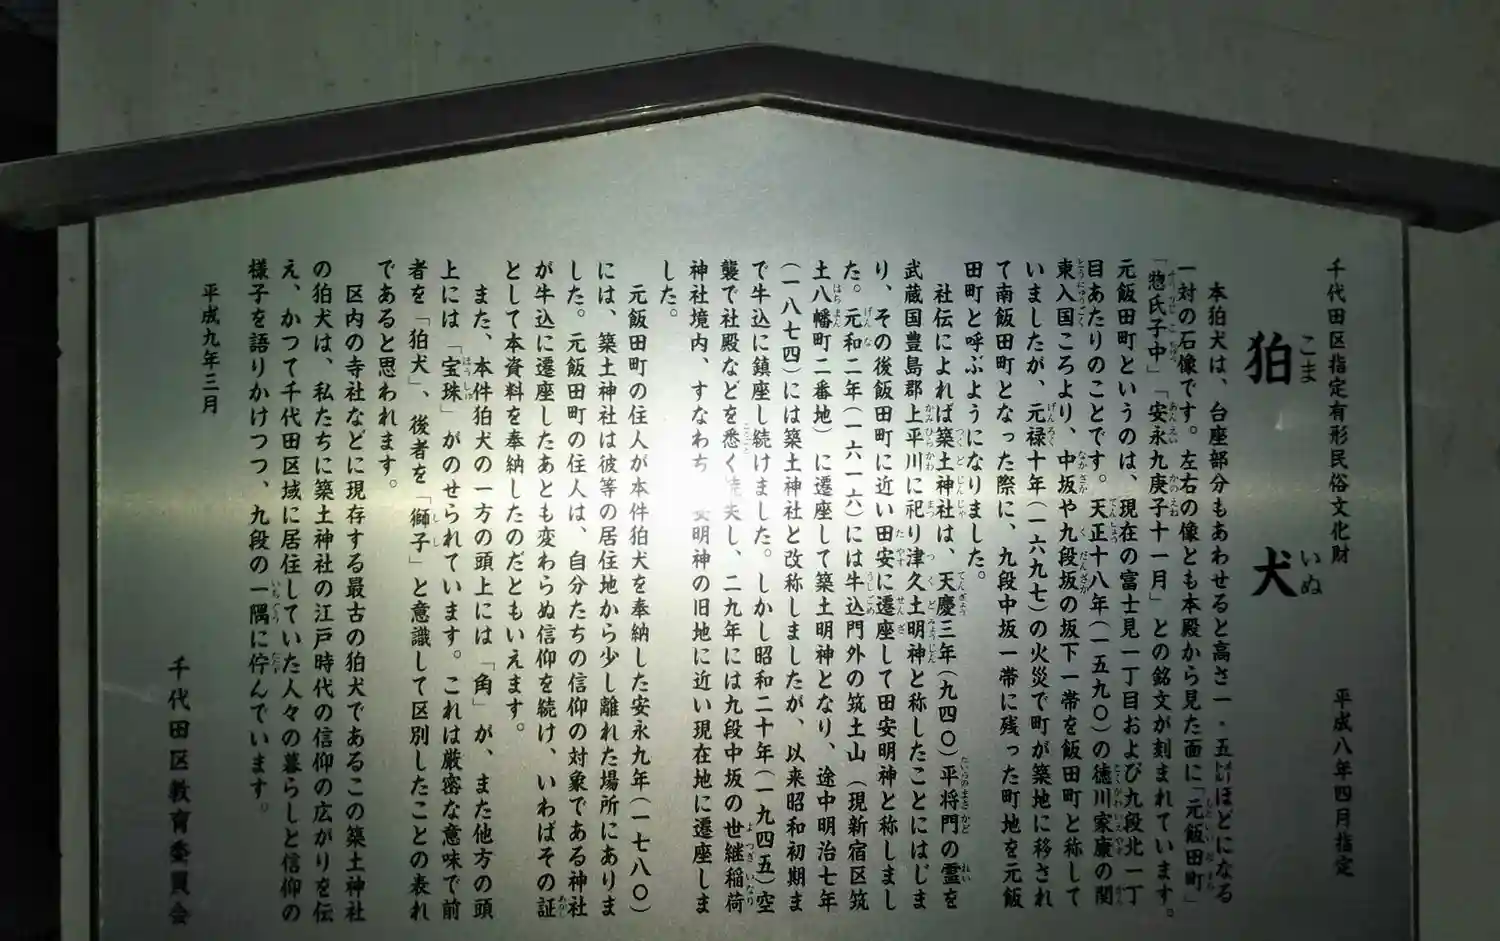 千代田区指定有形民俗文化財 平成八年四月指定
狛犬
こまいぬ
本狛犬は、台座部分もあわせると高さ一・五㍍ほどになる
一対の石像です。左右の像とも本殿から見た面に「元飯田町」
「惣氏子中」「安永九庚子十一月」との銘文が刻まれています。
元飯田町というのは、現在の富士見一丁目および九段北一丁
目あたりのことです。天正十八年(一五九〇)の徳川家康の関
東入国ころより、中坂や九段坂の坂下一帯を飯田町と称して
いましたが、元禄十年(一六九七)の火災で町が築地に移され
て南飯田町となった際に、九段中坂一帯に残った町地を元飯
田町と呼ぶようになりました。
社伝によれば築土神社は、天慶三年(九四〇)平将門の霊を
武蔵国豊島郡上平川に祀り津久土明神と称したことにはじま
り、その後飯田町に近い田安に遷座して田安明神と称しまし
た。元和二年(一六一六)には牛込門外の筑土山(現新宿区筑
土八幡町二番地)に遷座して築土明神となり、途中明治七年
(一八七四)には築土神社と改称しましたが、以来昭和初期ま
で牛込に鎮座し続けました。しかし昭和二十年(一九四五)空
襲で社殿などを悉く 失し、二九年には九段中坂の世継稲荷
神社境内、すなわち 安明神の旧地に近い現在地に遷座しま
した。
元飯田町の住人が本件狛犬を奉納した安永九年(一七八〇)
には、築土神社は彼等の居住地から少し離れた場所にありま
した。元飯田町の住人は、自分たちの信仰の対象である神社
が牛込に遷座したあとも変わらぬ信仰を続け、いわばその証
として本資料を奉納したのだともいえます。
また、本件狛犬の一方の頭上には「角」が、また他方の頭
上には「宝珠」がのせられています。これは厳密な意味で前
者を「狛犬」、後者を「獅子」と意識して区別したことの表れ
であると思われます。
区内の寺社などに現存する最古の狛犬であるこの築土神社
の狛犬は、私たちに築土神社の江戸時代の信仰の広がりを伝
え、かつて千代田区域に居住していた人々の暮らしと信仰の
様子を語りかけつつ、九段の一隅に佇んでいます。
平成九年三月
千代田区教育委員会